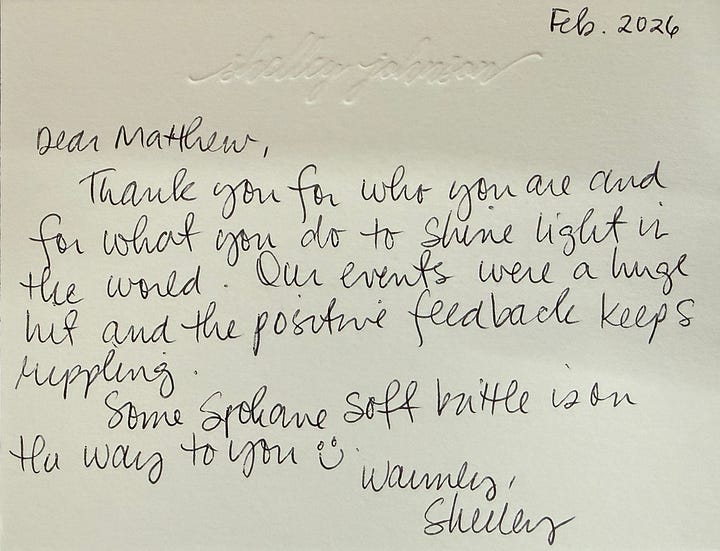 Feb. 2026
shelley johnson
Dear Matthew,
Thank you for who you are and
for what you do to shine light in
the world. Our events were a huge
hit and the positive feedback keeps
rippling.
Some Spokane soft brittle is on
the way to you ☺.
Warmly,
Shelley